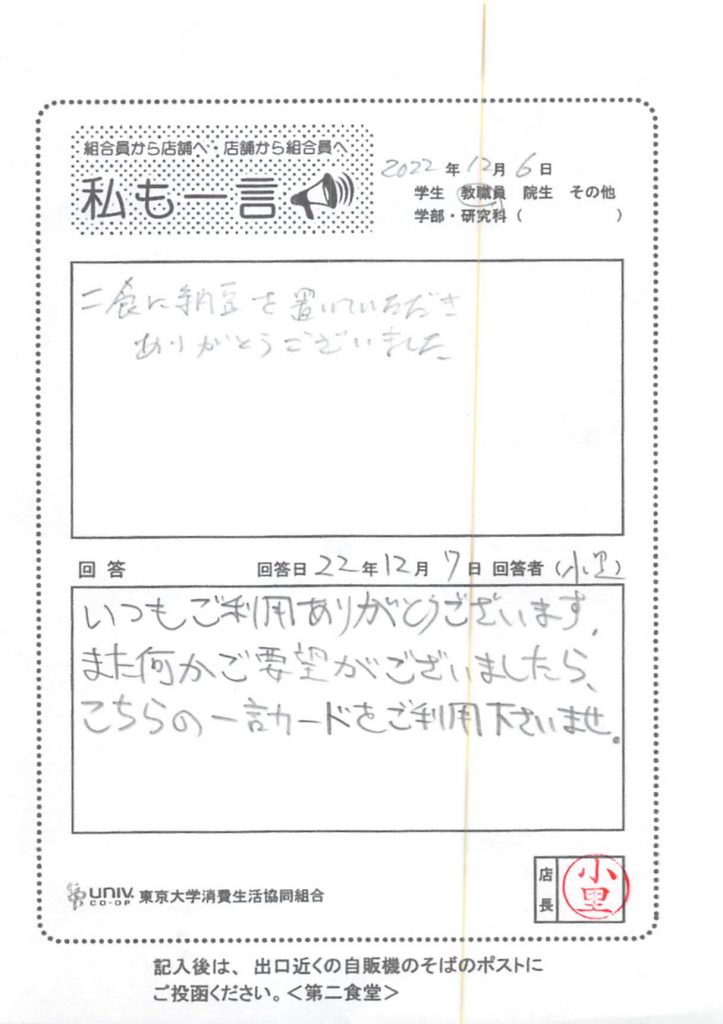 組合員から店舗へ・店舗から組合員へ
私も一言
2022年12月6日
学生 教職員 院生 その他
学部・研究科（ ）
二食に納豆を置いていただき
ありがとうございました
回答 回答日22年12月7日 回答者（小里）
いつもご利用ありがとうございます。
また何かご要望がございましたら、
こちらの一言カードをご利用下さいませ。
UNIV. CO-OP 東京大学消費生活協同組合
店長 小里
記入後は、出口近くの自販機のそばのポストに
ご投函ください。＜第二食堂＞